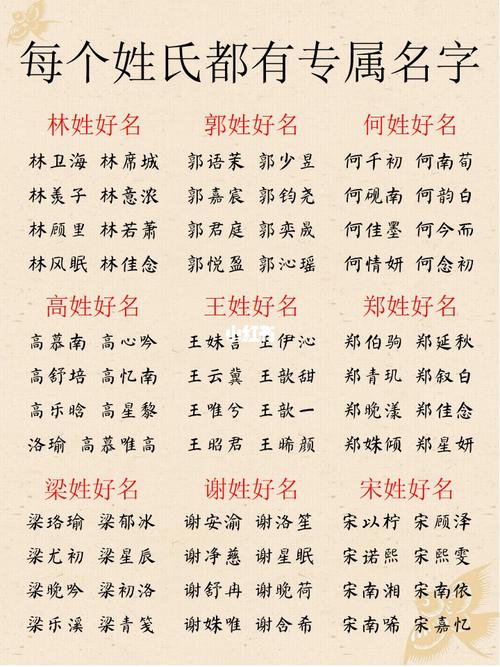 每个姓氏都有专属名字
林姓好名 郭姓好名 何姓好名
林卫海 林席城 郭语茉 郭少昱 何千初 何南荀
林羡子 林意浓 郭嘉宸 郭钧尧 何砚南 何韵白
林顾里 林若萧 郭君庭 郭奕晟 何佳墨 何今而
林风眠 林佳念 郭悦盈 郭沁瑶 何情妍 何念初
高姓好名 王姓好名 郑姓好名
高慕南 高心吟 王妹言 王伊沁 郑伯驹 郑延秋
高舒培 高忆南 王云冀 王歆甜 郑青玑 郑叙白
高乐晗 高星黎 王唯兮 王歆一 郑晚漾 郑佳念
洛瑜 高慕唯高 王昭君 王晞颜 郑姝倾 郑星妍
小红书
梁姓好名 谢姓好名 宋姓好名
梁珞瑜 梁郁冰 谢安渝 谢洛笙 宋以柠 宋顾泽
梁尤初 梁星辰 谢净慈 谢星眠 宋诺熙 宋熙雯
梁晚吟 梁初洛 谢舒冉 谢晚荷 宋南湘 宋南依
梁乐溪 梁青笺 谢姝唯 谢含希 宋南唏 宋嘉忆